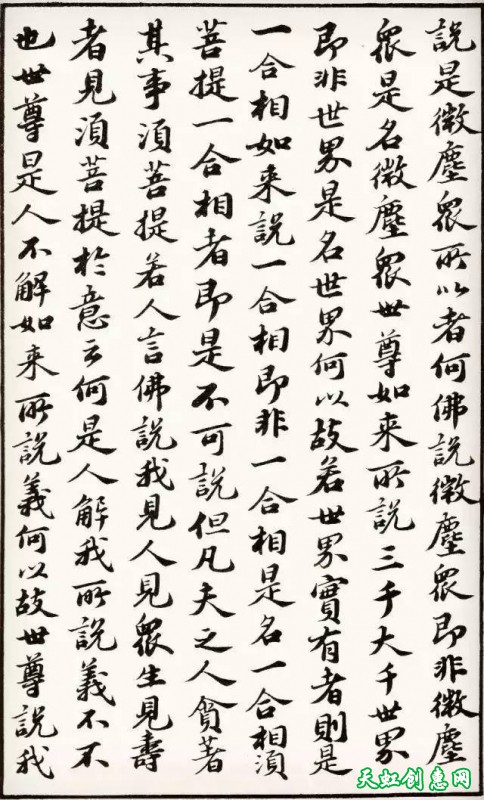 說是微塵眾所以者何佛說微塵眾即非微塵
眾是名微塵眾世尊如来所說三千大千世界
即非世界是名世界何以故若世界實有者則是
一合相如来說一合相即非一合相是名一合相須
菩提一合相者即是不可說但凡夫之人貪著
其事須菩提若人言佛說我見人見眾生見壽
者見須菩提於意云何是人解我所說義不不
也世尊是人不解如来所說義何以故世尊說我
天虹创惠网